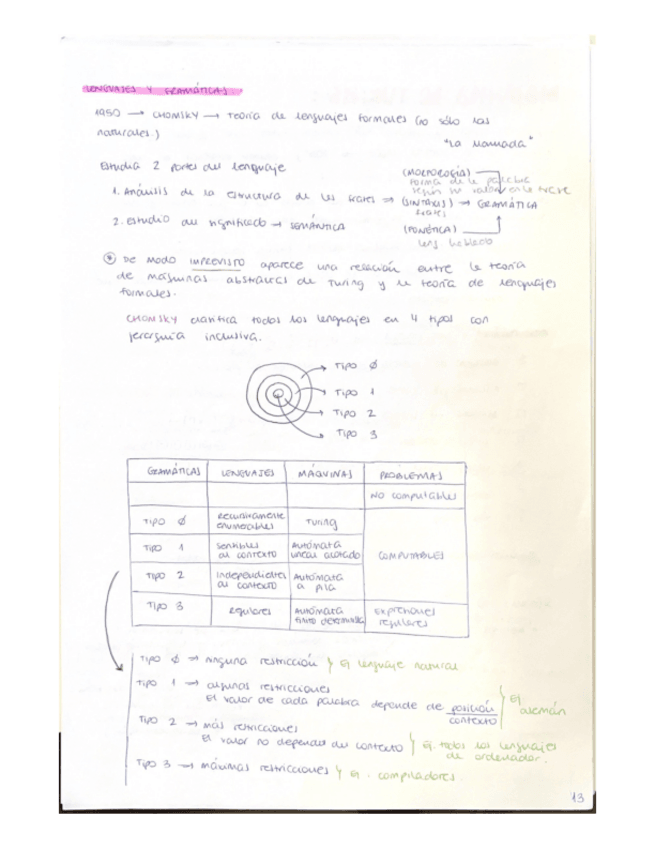 LENGUAJES Y GRAMÁTICAS
1950 → CHOMSKY → Teoría de lenguajes formales (no sólo las
naturales.)
"La llamada"
Estudia 2 partes del lenguaje
(MORFOLOGÍA)
forma de la palabra
según su valor en la frase
1. Análisis de la estructura de las frases → (SINTAXIS) → GRAMÁTICA
frases
2. estudio del significado → SEMÁNTICA
(FONÉTICA)
leng hablado
De modo IMPREVISTO aparece una relación entre la teoría
de máquinas abstractas de Turing y la teoría de lenguajes
formales.
CHOMSKY clasifica todos los lenguajes en 4 tipos con
jerarquía inclusiva.
TIPO Ø
TIPO 1
TIPO 2
TIPO 3
GRAMÁTICAS LENGUAJES MÁQUINAS PROBLEMAS
NO computables
TIPO Ø recursivamente enumerables Turing
TIPO 1 sensibles al contexto Autómata lineal acotado COMPUTABLES
TIPO 2 Independientes al contexto Autómata a pila
TIPO 3 regulares Autómata finito determinista expresiones regulares
TIPO Ø → ninguna restricción } Ej lenguaje natural
TIPO 1 → algunas restricciones
el valor de cada palabra depende de posición
contexto } Ej alemán
TIPO 2 → más restricciones
el valor no depende del contexto } Ej. todos los lenguajes
de ordenador.
TIPO 3 → máximas restricciones } Ej. compiladores.
13